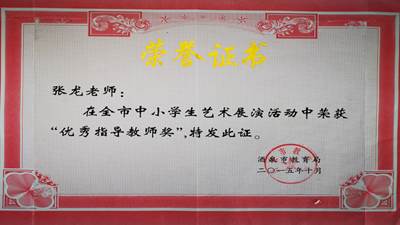 荣誉证书
张龙老师：
在全市中小学生艺术展演活动中荣获
“优秀指导教师奖”，特发此证。
酒泉市教育局
二〇一五年十月